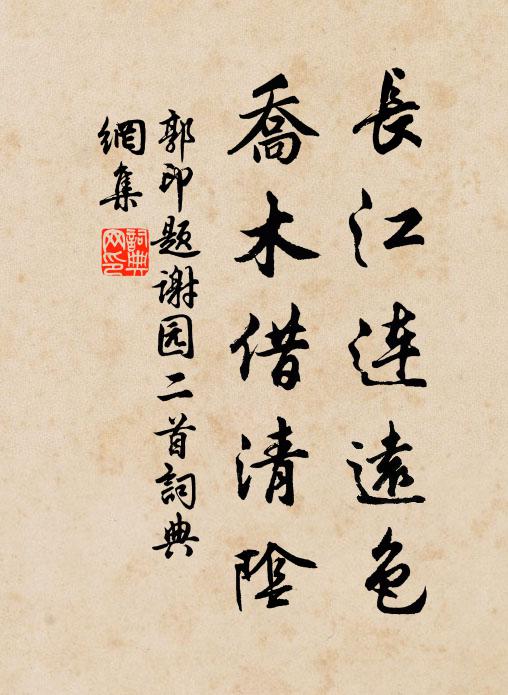 長江连遠色
喬木借清陰
郭印题谢园二首詞典
網集
詞典
网印